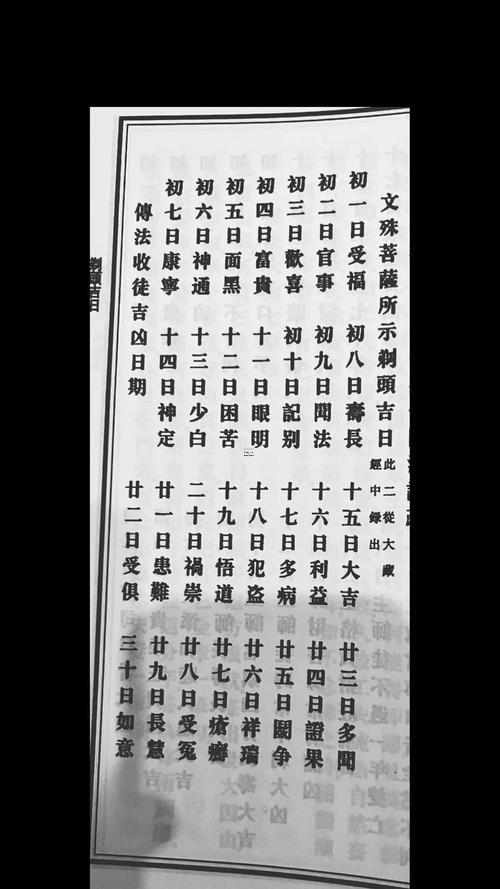 文殊菩薩所示剃頭吉日 此二從大藏
經中録出
初一日受福 初八日壽長 十五日大吉 廿三日多聞
初二日官事 初九日聞法 十六日利益 廿四日證果
初三日歡喜 初十日記别 十七日多病 廿五日鬭争
初四日富貴 十一日眼明 十八日犯盗 廿六日祥瑞
初五日面黑 十二日困苦 十九日悟道 廿七日瘡癬
初六日神通 十三日少白 二十日禍祟 廿八日受冤
初七日康寧 十四日神定 廿一日患難 廿九日長慧
傳法收徒吉凶日期 廿二日受俱 三十日如意